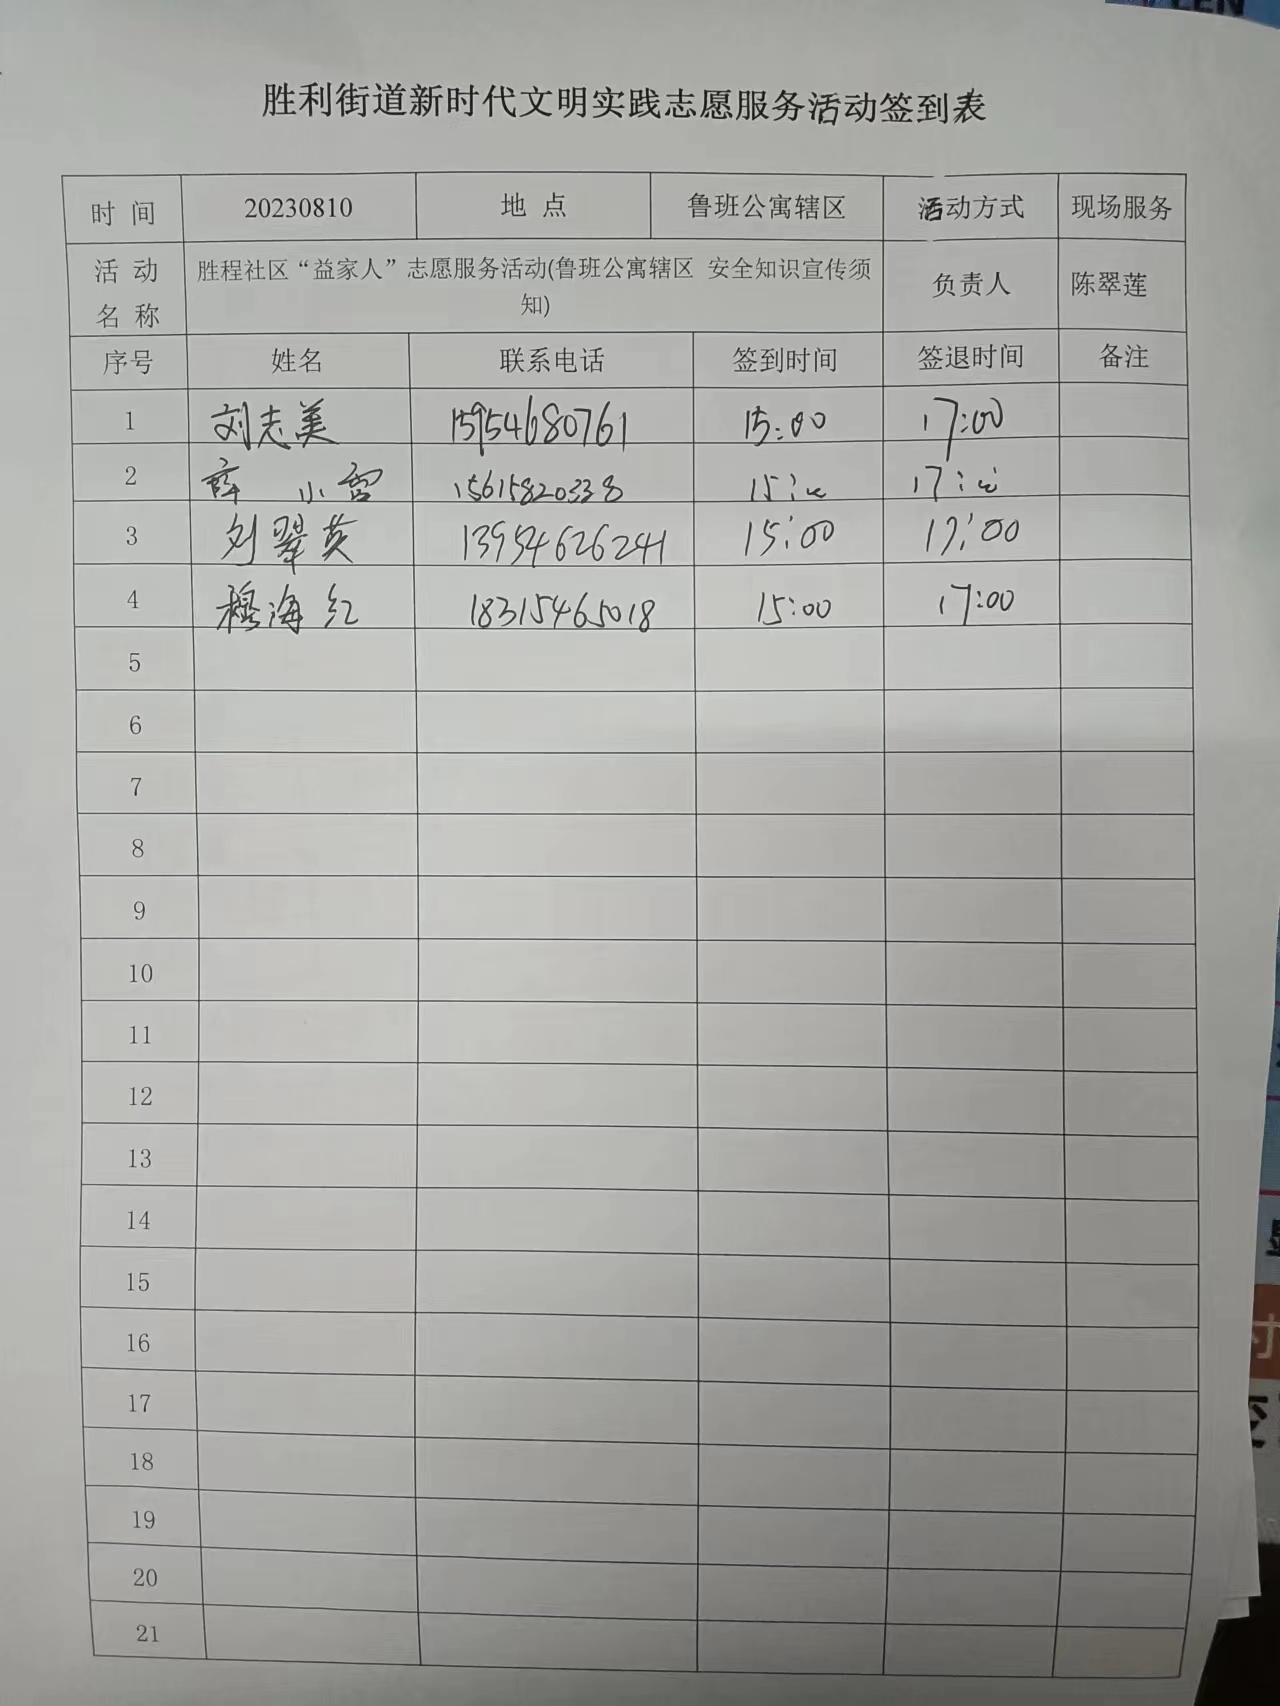 胜利街道新时代文明实践志愿服务活动签到表
时 间 20230810 地 点 鲁班公寓辖区 活动方式 现场服务
活 动 名 称 胜程社区“益家人”志愿服务活动(鲁班公寓辖区 安全知识宣传须知) 负责人 陈翠莲
序号 姓名 联系电话 签到时间 签退时间 备注
1 刘志美 15954680761 15:00 17:00
2 薛小雪 15615820338 15:00 17:00
3 刘翠英 13954626241 15:00 17:00
4 穆海红 18315465018 15:00 17:00
5
6
7
8
9
10
11
12
13
14
15
16
17
18
19
20
21